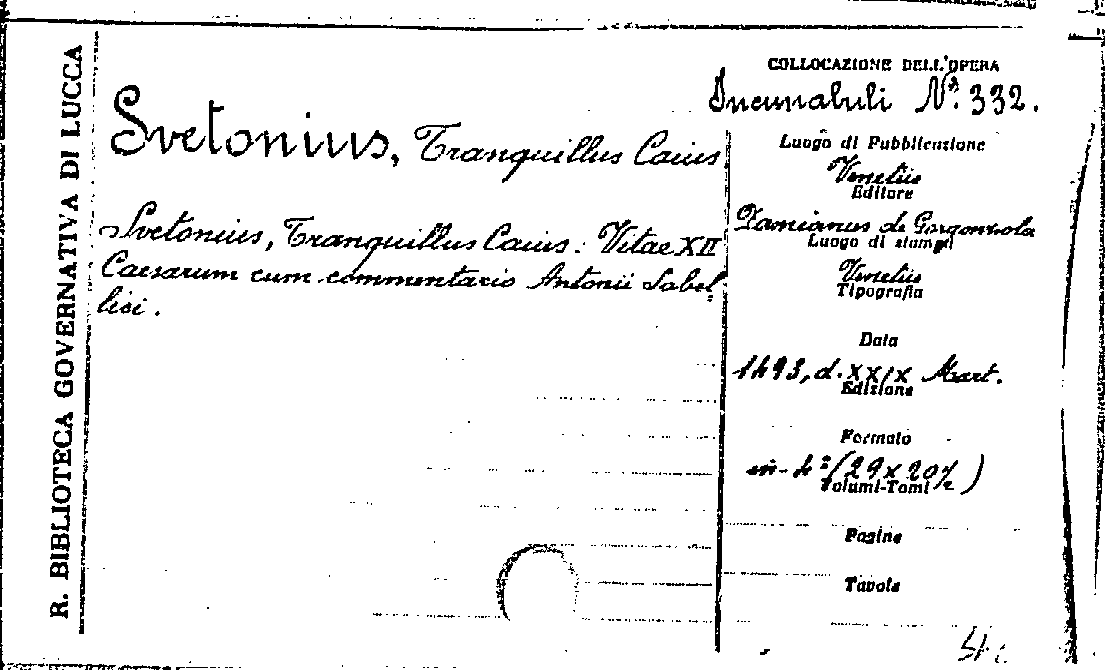 R. BIBLIOTECA GOVERNATIVA DI LUCCA
COLLOCAZIONE DELL'OPERA
Incunabuli N.º 332.
Svetonius, Tranquillus Caius
Svetonius, Tranquillus Caius: Vitae XII
Caesarum cum commentario Antonii Sabel-
lici.
Luogo di Pubblicazione
Venetiis
Editore
Damianus de Gorgonzola
Luogo di stampa
Venetiis
Tipografia
Data
1493, d. XXIX Mart.
Edizione
Formato
in-4º (29 x 20½)
Volumi-Tomi
Pagine
Tavole